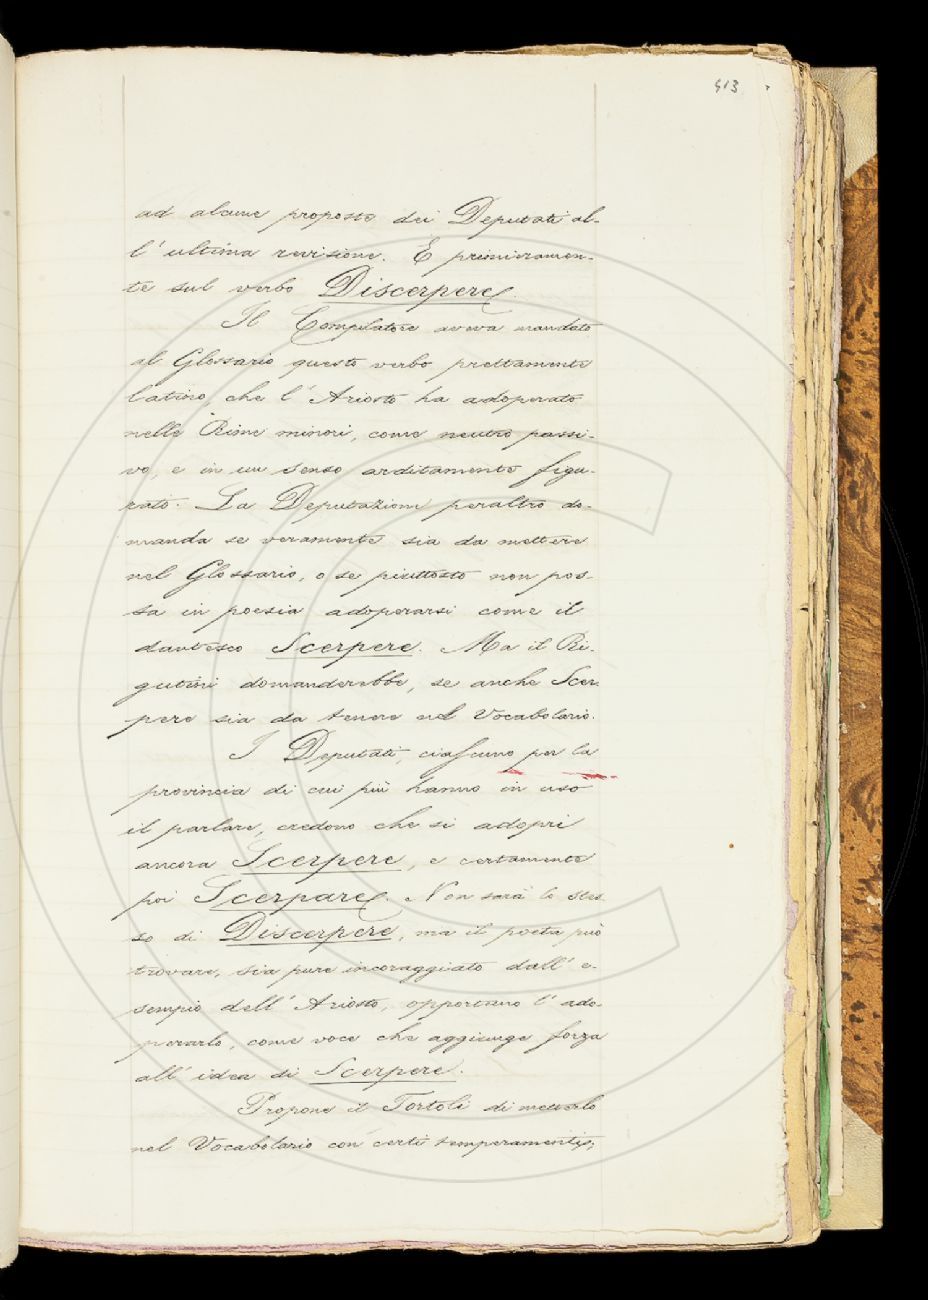 413
ad alcune proposte dei Deputati al-
l'ultima revisione. E primieramen-
te sul verbo Discerpere.
Il Compilatore aveva mandato
al Glossario questo verbo prettamente
latino, che l'Ariosto ha adoperato
nelle Rime minori, come neutro passi-
vo, e in un senso arditamente figu-
rato. La Deputazioni peraltro do-
manda se veramente sia da mettere
nel Glossario, o se piuttosto non pos-
sa in poesia adoperarsi come il
dantesco Scerpere. Ma il Ri-
gutini domanderebbe, se anche Scer-
pere sia da tenere nel Vocabolario.
I Deputati, ciascuno per la
provincia di cui più hanno in uso
il parlare, credono che si adopri
ancora Scerpere, e certamente
poi Scerpare. Non sarà lo stes
so di Discerpere, ma il poeta può
trovare, sia pure incoraggiato dall'e-
sempio dell'Ariosto, opportuno l'ado-
perarlo, come voce che aggiunga forza
all'idea di Scerpere.
Propone il Tortoli di metterlo
nel Vocabolario con certi temperamenti;